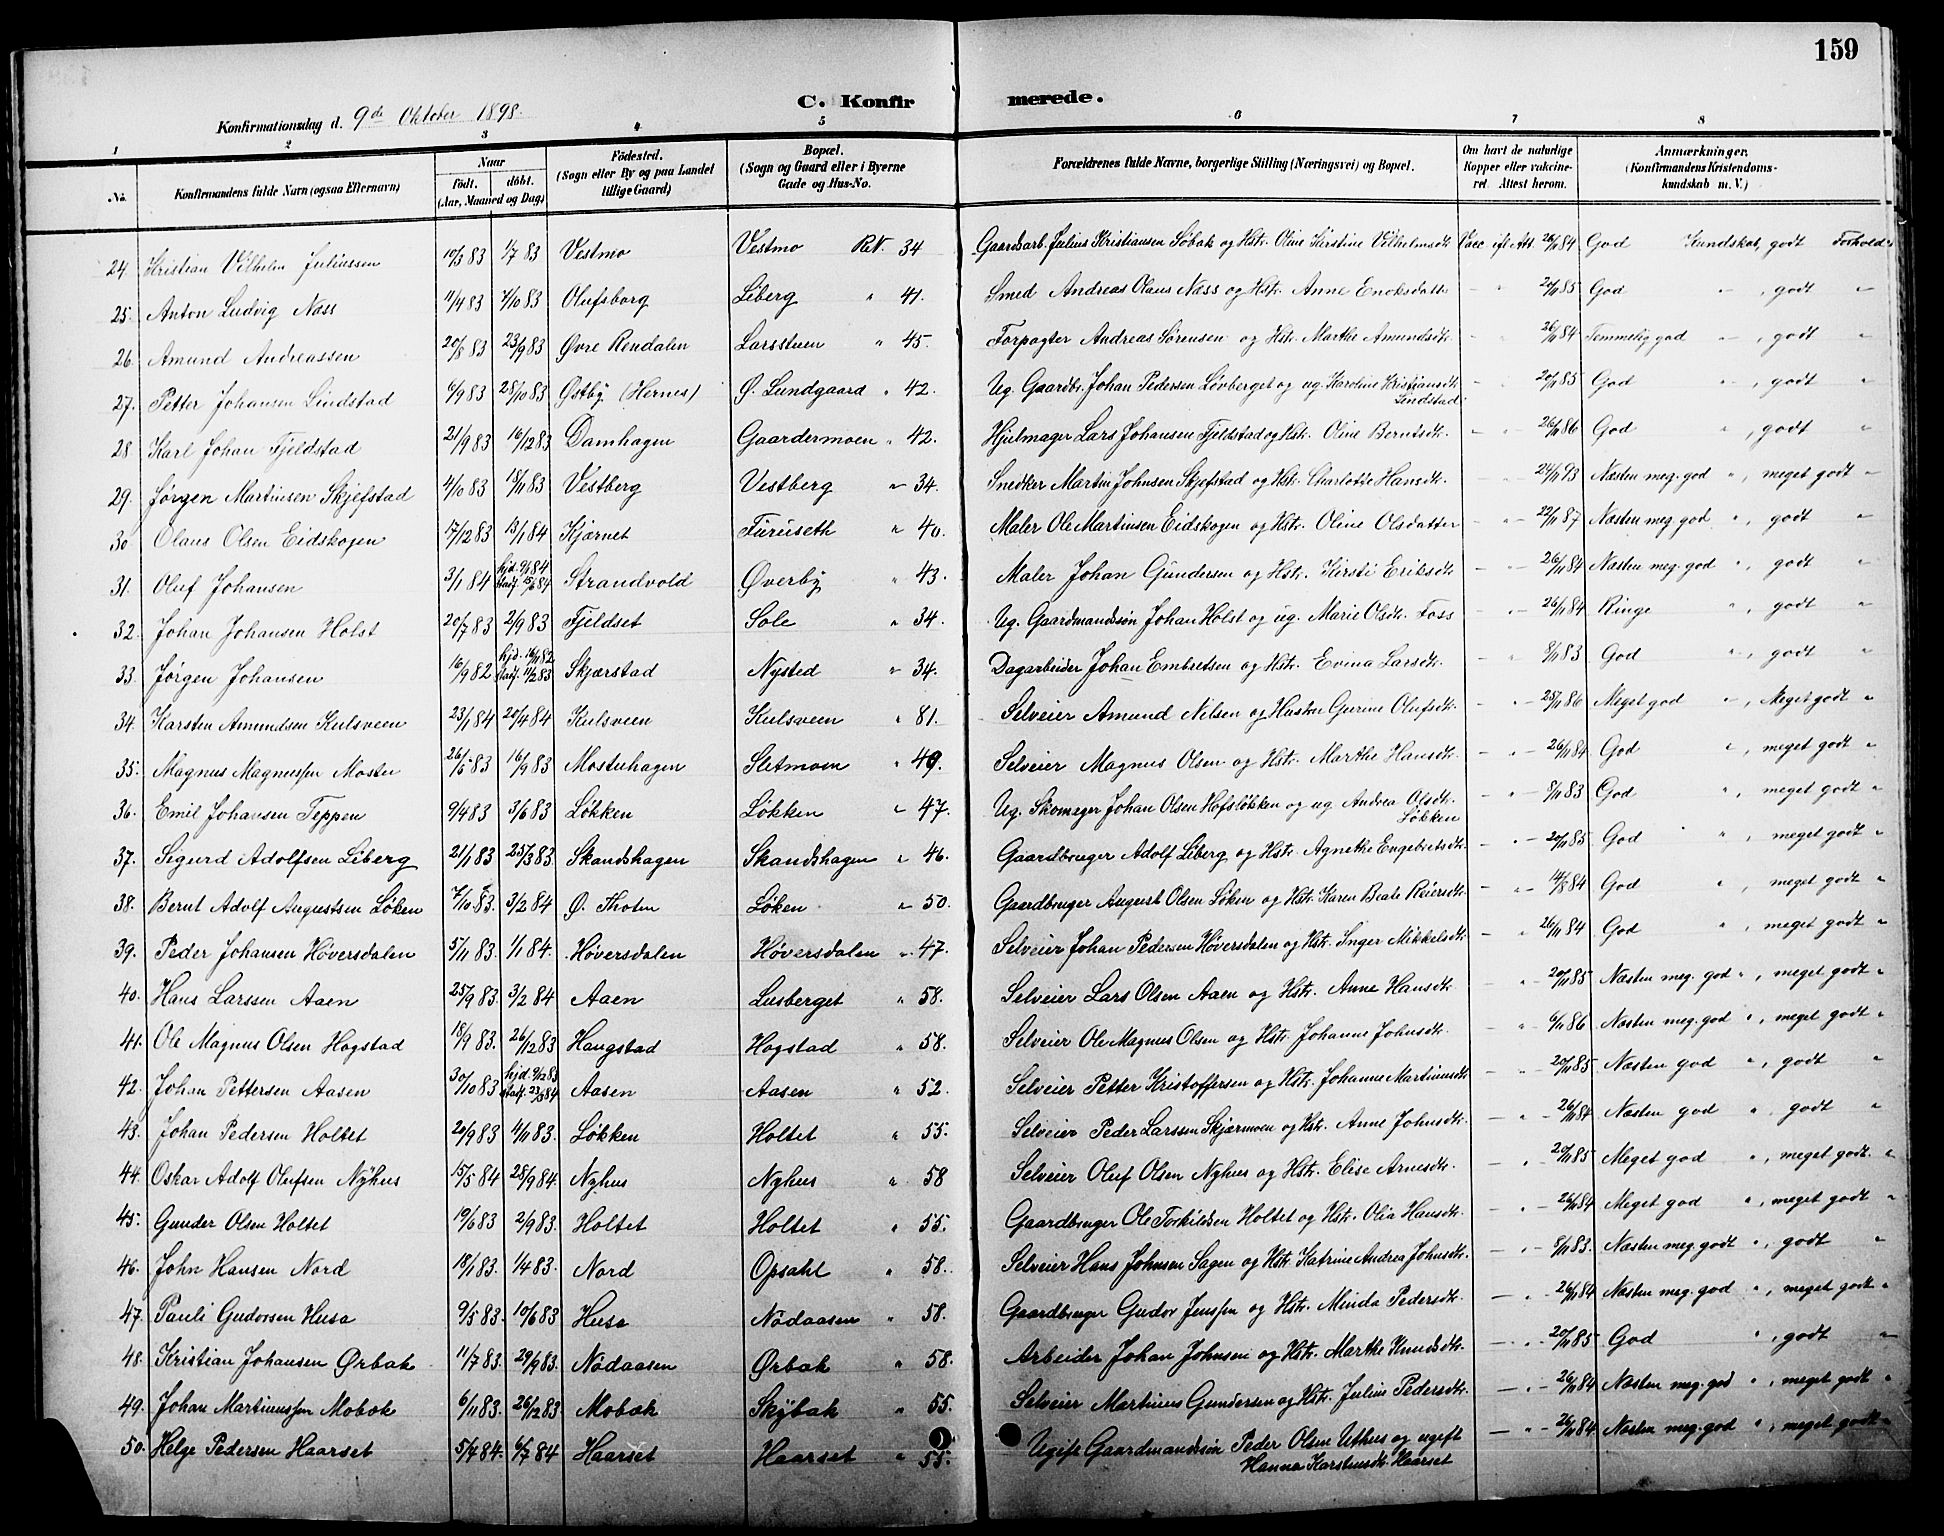 159
C. Konfirmerede.
Konfirmationsdag d. 9de Oktober 1898.
1 2 3 4 5 6 7 8
No. Konfirmandens fulde Navn (ogsaa Efternavn) Naar födt. döbt. (Aar, Maaned og Dag) Födested. (Sogn eller By og paa Landet tillige Gaard) Bopæl. (Sogn og Gaard eller i Byerne Gade og Hus-No. Forældrenes fulde Navne, borgerlige Stilling (Næringsvei) og Bopæl. Om havt de naturlige Kopper eller vakcineret. Attest herom. Anmærkninger. (Konfirmandens Kristendomskundskab m. V.)
24. Kristian Vilhelm Juliussen 10/3 83 1/7 83 Vestmo Vestmo Rek. 34 Gaardsarb. Julius Kristiansen Søbak og Hstr. Oline Kirstine Vilhelmsdt. Vacc. ifl. Att. 26/11 84 God Kundskab, godt Forhold
25. Anton Ludvig Næss 11/4 83 7/10 83 Olufsborg Liberg " 41. Smed Andreas Olaus Næss og Hstr. Anne Enoksdatter - " 20/11 85 God " , godt "
26. Amund Andreassen 20/8 83 23/9 83 Øvre Rendalen Larsstuen " 45. Forpagter Andreas Sørensen og Hstr. Marthe Amundsdt. - " 26/11 84 Temmelig god " , godt "
27. Petter Johansen Lindstad 6/9 83 28/10 83 Østby (Hernes) Ø. Lundgaard " 42. Ug. Gaardbr. Johan Pedersen Løvberget og ug. Karoline Kristiansdt. Lindstad - " 20/11 85 God " , godt "
28 Karl Johan Fjeldstad 21/9 83 16/12 83 Damhagen Gaardermoen " 42. Hjulmager Lars Johansen Fjeldstad og Hstr. Oline Berntsdt. - " 26/11 86 God " , godt "
29. Jørgen Martinsen Skjefstad 4/10 83 18/11 83 Vestberg Vestberg " 34. Snedker Martin Johnsen Skjefstad og Hstr. Charlotte Hansdt. - " 24/11 93 Næsten meg. god " , meget godt "
30. Olaus Olsen Eidskogen 17/12 83 13/1 84 Kjærnet Furuseth " 40. Maler Ole Martinsen Eidskogen og Hstr. Oline Olsdatter - " 22/11 87 Næsten meg. god " , godt "
31. Oluf Johansen 3/1 84 hjd. 9/1 84 stadf. 15/6 84 Strandvold Øverby " 43. Maler Johan Gundersen og Hstr. Kirsti Eriksdt. - " 26/11 84 Næsten meg. god " , godt "
32. Johan Johansen Holst 20/7 83 2/9 83 Fjeldset Sole " 34. Ug. Gaardmandssøn Johan Holst og ug. Marie Olsdt. Foss - " 26/11 84 Ringe " , godt "
33. Jørgen Johansen 16/9 82 hjd. 16/11 82 stadf. 11/2 83 Skjærstad Nysted " 34. Dagarbeider Johan Embretsen og Hstr. Evina Larsdt. - " 8/11 83 God " , godt "
34. Karsten Amundsen Kulsveen 23/1 84 20/4 84 Kulsveen Kulsveen " 81. Selveier Amund Nilsen og Hustru Gurine Olufsdt. - " 25/11 86 Meget god " , Meget godt "
35. Magnus Magnussen Moster 26/5 83 16/9 83 Mosterhagen Sletmoen " 49. Selveier Magnus Olsen og Hstr. Marthe Hansdt. - " 26/11 84 God " , meget godt "
36. Emil Johansen Teppen 9/4 83 3/6 83 Løkken Løkken " 47. Ug. Skomager Johan Olsen Hofsløkken og ug. Andrea Olsdt. Løkken - " 8/11 83 God " , meget godt "
37. Sigurd Adolfsen Liberg 21/1 83 25/3 83. Skandshagen Skandshagen " 46. Gaardbruger Adolf Liberg og Hstr. Agnethe Engebretsdt. - " 20/11 85 God " , meget godt "
38. Bernt Adolf Augustsen Löken 7/10 83. 3/2 84 Ø. Thoten Løken " 50. Gaardbruger August Olsen Løken og Hstr. Karen Beate Reiersdt. - " 14/8 84 God " , meget godt "
39. Peder Johansen Höversdalen 5/11 83. 1/1 84. Höversdalen Höversdalen " 47. Selveier Johan Pedersen Höversdalen og Hstr. Inger Mikkelsdt. - " 26/11 84 God " , meget godt "
40. Hans Larssen Aaen 25/9 83. 3/2 84 Aaen Lusberget " 58. Selveier Lars Olsen Aaen og Hstr. Anne Hansdt. - " 20/11 85 Næsten meg. god " , meget godt "
41. Ole Magnus Olsen Hogstad 18/9 83. 26/12 83 Haugstad Hogstad " 58. Selveier Ole Magnus Olsen og Hstr. Johanne Johnsdt. - " 6/11 86 Næsten meg. god " , meget godt "
42. Johan Pettersen Aasen 30/10 83 hjd. 9/12 83 stadf. 84 Aasen Aasen " 52. Selveier Petter Kristoffersen og Hstr. Johanne Martinusdt. - " 20/11 85 Næsten god " , godt "
43. Johan Pedersen Holtet 20/9 83 4/11 83. Løkken Holtet " 55. Selveier Peder Larssen Skjærmoen og Hstr. Anne Johnsdt. - " 26/11 84 Næsten god " , godt "
44. Oskar Adolf Olufsen Nyhus 15/5 84 28/9 84. Nyhus Nyhus " 58 Selveier Oluf Olsen Nyhus og Hstr. Elise Arnesdt. - " 20/11 85 Meget god " , meget godt. "
45. Gunder Olsen Holtet 19/6 83 2/9 83. Holtet Holtet " 55. Gaardbruger Ole Torkildsen Holtet og Hstr. Olia Hansdt. - " 26/11 84 Meget god " , meget godt "
46. John Hansen Nord 18/1 83. 1/4 83. Nord Opsahl " 58. Selveier Hans Johnsen Sagen og Hstr. Katrine Andrea Johnsdt. - " 8/11 83. Næsten meg. godt " , godt "
47. Pauli Gudorsen Husa 9/5 83. 10/6 83 Husa Nödaasen " 58. Gaardbruger Gudor Jenssen og Hstr. Minda Pedersdt. - " 26/11 84 Næsten meg. god " , meget godt "
48. Kristian Johansen Ørbak 11/7 83. 29/9 83. Nödaasen Ørbak " 58. Arbeider Johan Johnsen og Hstr. Marthe Knudsdt. - " 20/11 85 God " , godt "
49. Johan Martinussen Mobak 6/11 83. 26/12 83 Mobak Skybak " 55. Selveier Martinus Gundersen og Hstr. Juline Pedersdt. - " 26/11 84 Næsten meg. god " , meget godt "
50. Helge Pedersen Haarset 5/4 84. 6/7 84 Haarset Haarset " 55. Ugift Gaardmandssön Peder Olsen Uthus og ugift Hanna Karstensdt. Haarset - " 26/11 84 Næsten meg. god " , meget godt "